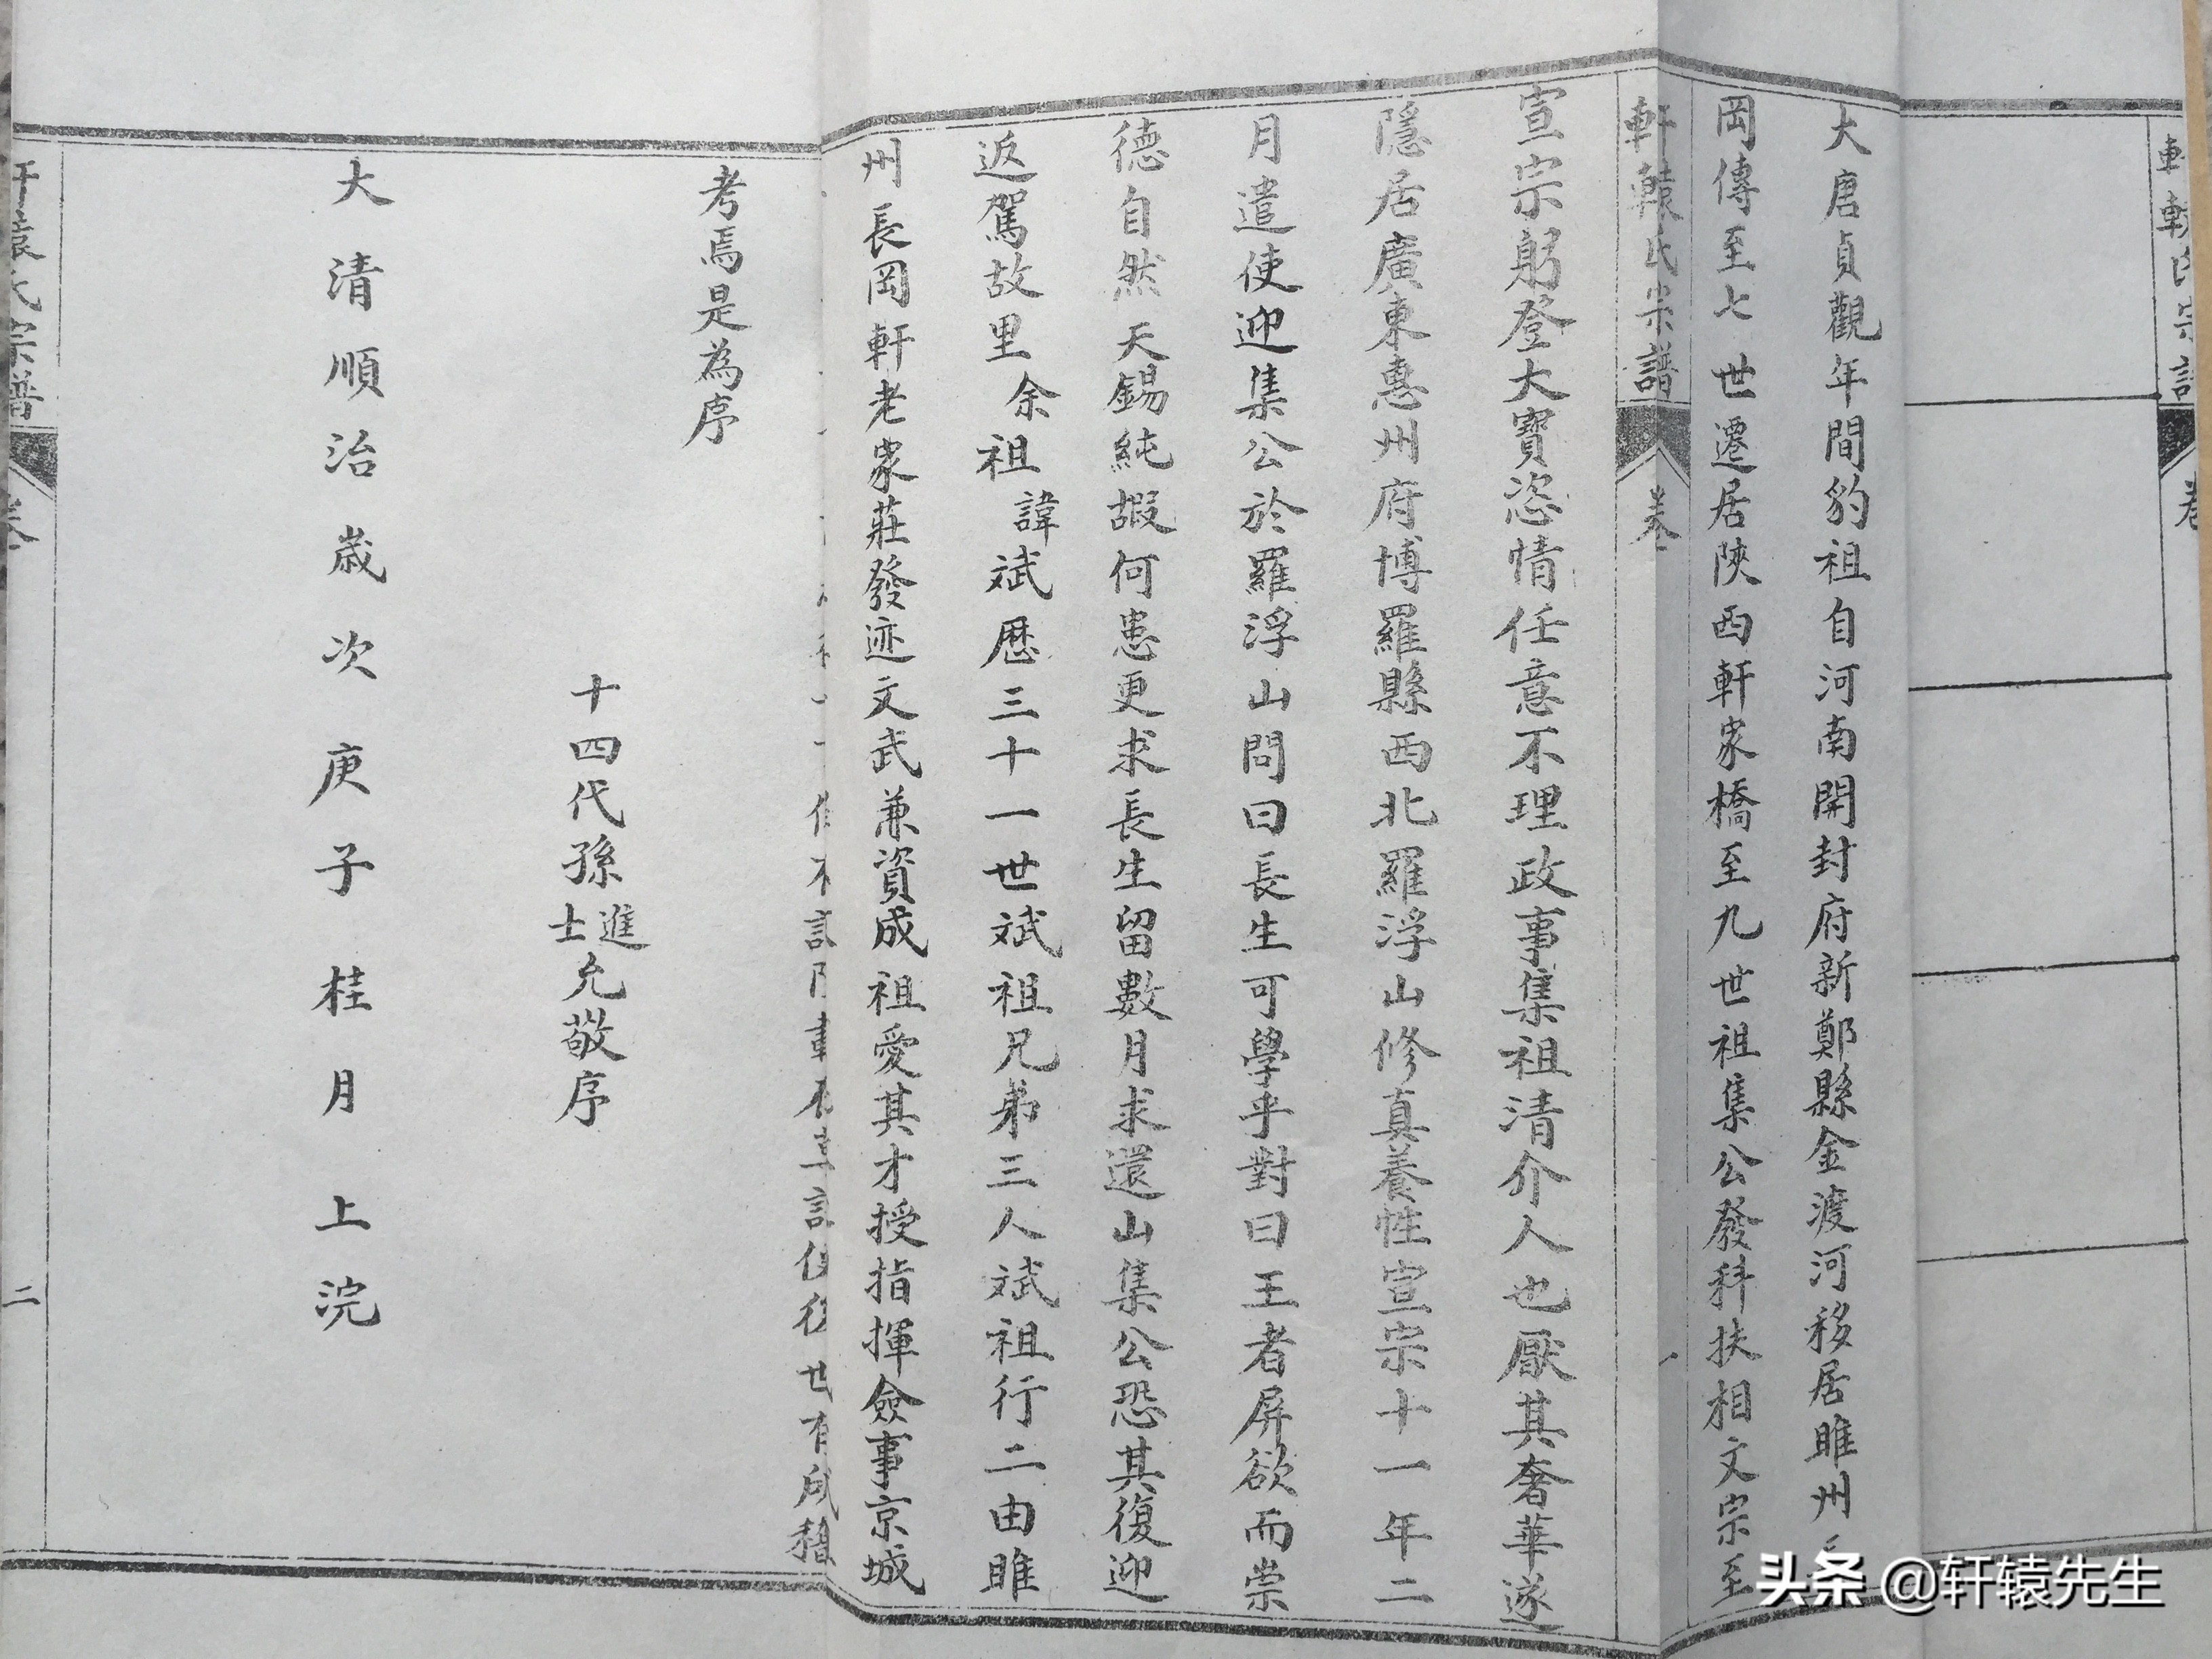 大唐貞觀年間豹祖自河南開封府新鄭縣金渡河移居睢州
岡傳至七世遷居陝西軒家橋至九世祖集公發科扶相文宗至
軒轅氏宗譜 卷一 一
宣宗躬登大寶恣情任意不理政事集祖清介人也厭其奢華遂
隱居廣東惠州府博羅縣西北羅浮山修真養性宣宗十一年二
月遣使迎集公於羅浮山問曰長生可學乎對曰王者屏欲而崇
德自然天錫純嘏何患更求長生留數月求還山集公恐其復迎
返駕故里余祖諱斌歷三十一世斌祖兄弟三人斌祖行二由睢
州長岡軒老家莊發迹文武兼資成祖愛其才授指揮僉事京城
世有
考焉是為序
十四代孫進士允敬序
大清順治歲次庚子桂月上浣
軒轅氏宗譜 卷一 二
头条 @轩辕先生